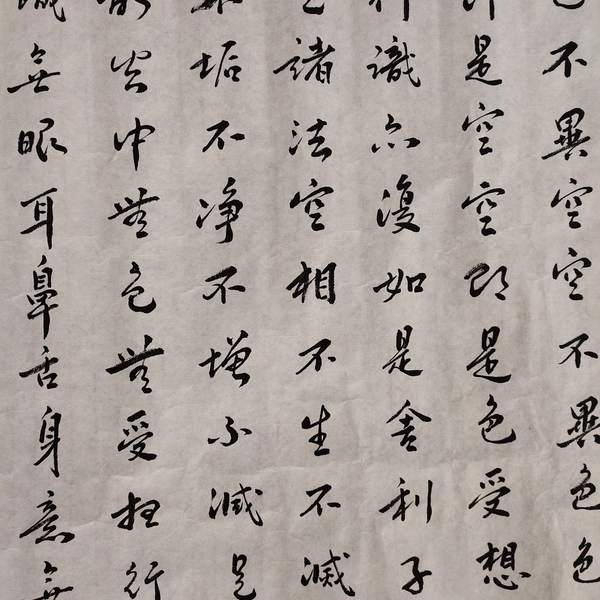 色不異空空不異色色
即是空空即是色受想
行識亦復如是舍利子
是諸法空相不生不滅
不垢不净不增不減是
故空中無色無受想行
識無眼耳鼻舌身意無